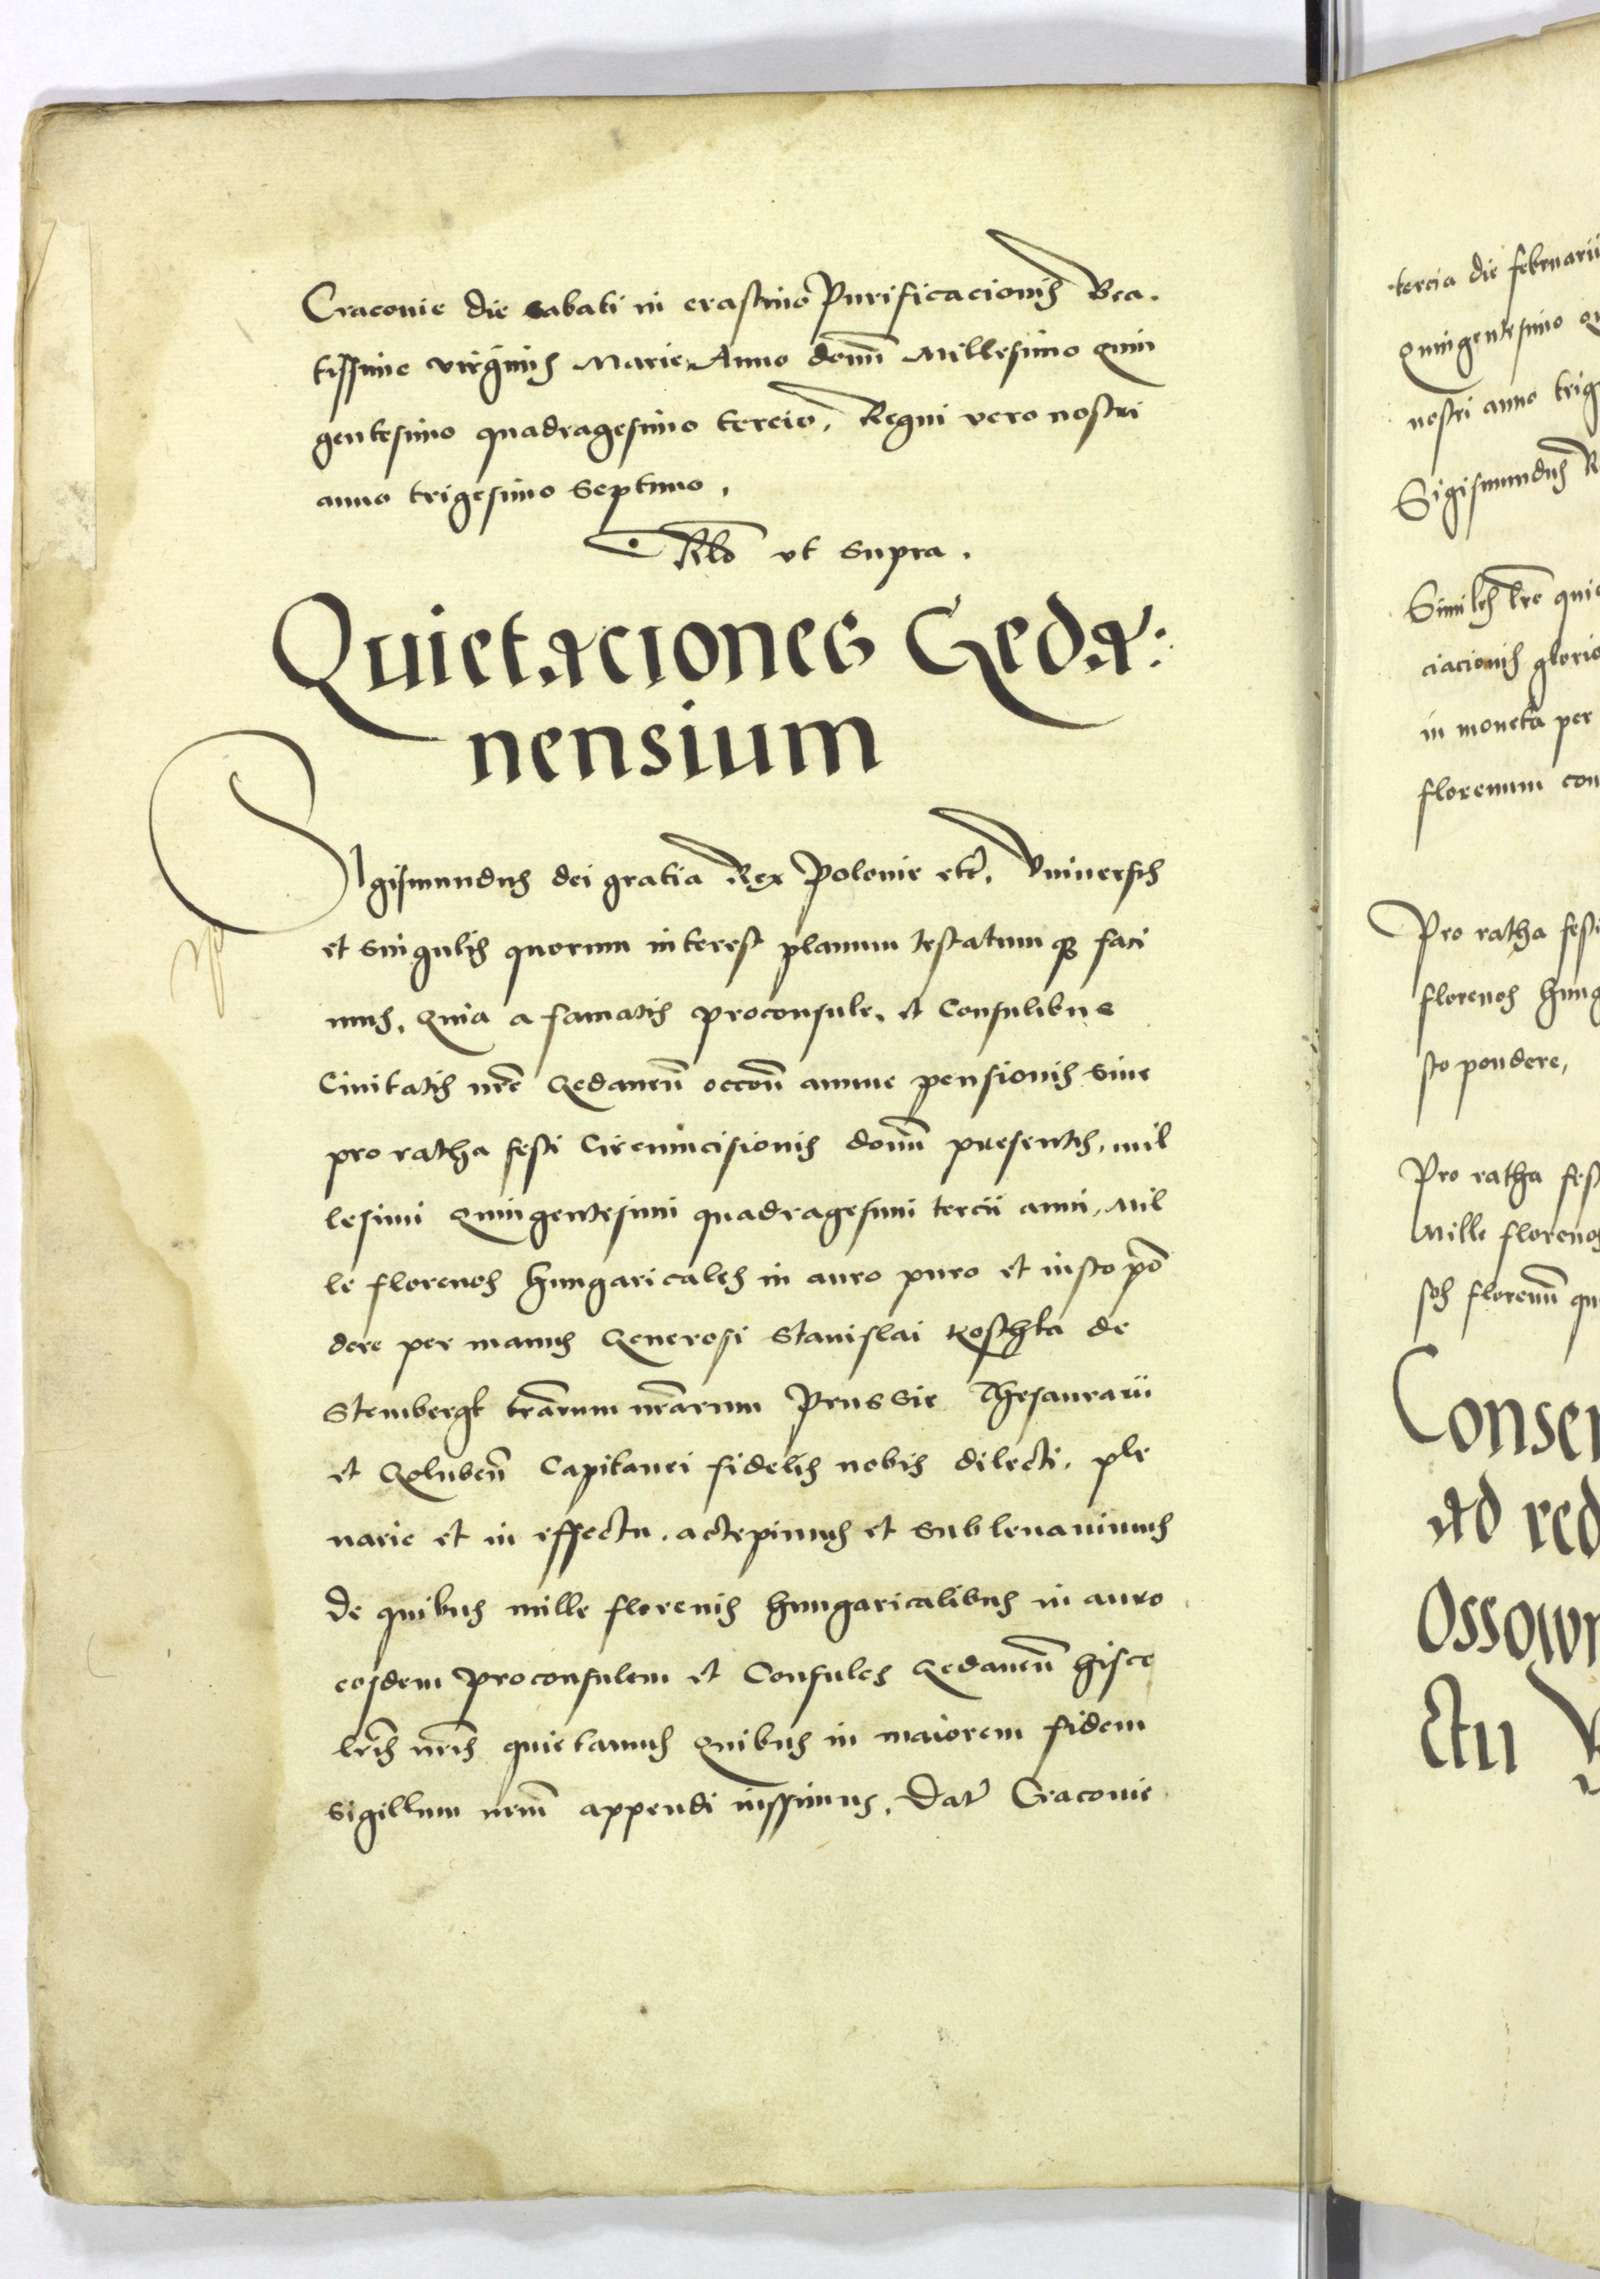 Craconie die sabati in crastino Purificacionis Bea.
tissime virginis Marie, Anno domi Millesimo quin
gentesimo quadragesimo tercio, Regni vero nostri
anno trigesimo septimo,
Rlo ut supra.
Quietaciones Geda:
nensium
Sigismundus dei gratia Rex Polonie etc, Universis
et singulis quorum interest planum testatum q3 faci
mus, Quia a famatis proconsule, et Consulibus
Civitatis nre Gedanen occon annue pensionis sive
pro ratha festi Circumcisionis domi presentis, mil
lesimi quingentesimi quadragesimi tercii anni, Mil
le florenos hungaricales in auro puro et iusto po
dere per manus Generosi Stanislai Koschka de
Stembergk trarum nrarum Prussie Thesaurarii
et Goluben Capitanei fidelis nobis dilecti, ple
narie et in effectu, accepimus et sublevavimus
De quibus mille florenis hungaricalibus in auro
eosdem Proconsulem et Consules Gedanen hisce
lris nris quietamus Quibus in maiorem fidem
Sigillum nrum appendi iussimus, Dat Craconie
tercia die februarii
Quingentesimo
nostri anno
Sigismundus
Similes lre
ciacionis
in moneta per
florenum
Pro ratha
florenos
sto pondere,
Pro ratha
Mille florenos
florenum
ad